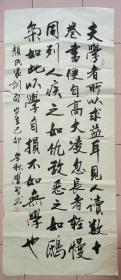 夫學者所以求益耳見人讀數十
卷書便自高大凌忽長者輕慢
同列人疾之如仇敵惡之如鴟
梟如此以學自損不如無學也
顏氏家訓句 己卯 秋